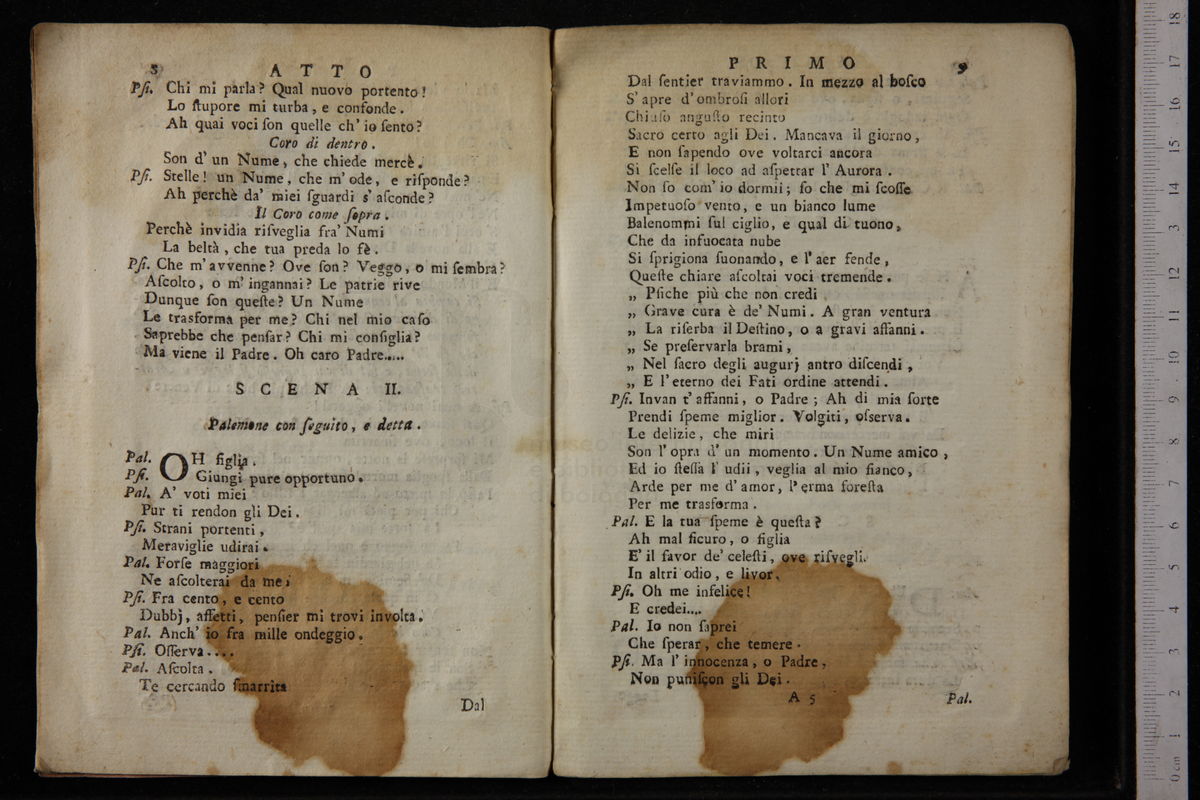 8 ATTO
Pſi. Chi mi parla? Qual nuovo portento!
Lo ſtupore mi turba, e confonde.
Ah quai voci ſon quelle ch' io ſento?
Coro di dentro.
Son d' un Nume, che chiede mercè.
Pſi. Stelle! un Nume, che m' ode, e riſponde?
Ah perchè da' miei ſguardi s' aſconde?
Il Coro come ſopra.
Perchè invidia riſveglia fra' Numi
La beltà, che tua preda lo fè.
Pſi. Che m' avvenne? Ove ſon? Veggo, o mi ſembra?
Aſcolto, o m' ingannai? Le patrie rive
Dunque ſon queſte? Un Nume
Le trasforma per me? Chi nel mio caſo
Saprebbe che penſar? Chi mi conſiglia?
Ma viene il Padre. Oh caro Padre.....
SCENA II.
Palemone con ſeguito, e detta.
Pal. OH figlia.
Pſi. Giungi pure opportuno.
Pal. A' voti miei
Pur ti rendon gli Dei.
Pſi. Strani portenti,
Meraviglie udirai.
Pal. Forſe maggiori
Ne aſcolterai da me.
Pſi. Fra cento, e cento
Dubbj, affetti, penſier mi trovi involta.
Pal. Anch' io fra mille ondeggio.
Pſi. Oſſerva....
Pal. Aſcolta.
Te cercando ſmarrita
Dal
PRIMO 9
Dal ſentier traviammo. In mezzo al boſco
S' apre d' ombroſi allori
Chiuſo anguſto recinto
Sacro certo agli Dei. Mancava il giorno,
E non ſapendo ove voltarci ancora
Si ſcelſe il loco ad aſpettar l' Aurora.
Non ſo com' io dormii; ſo che mi ſcoſſe
Impetuoſo vento, e un bianco lume
Balenommi ſul ciglio, e qual di tuono,
Che da infuocata nube
Si ſprigiona ſuonando, e l' aer fende,
Queſte chiare aſcoltai voci tremende.
„ Pſiche più che non credi
„ Grave cura è de' Numi. A gran ventura
„ La riſerba il Deſtino, o a gravi affanni.
„ Se preſervarla brami,
„ Nel ſacro degli augurj antro diſcendi,
„ E l' eterno dei Fati ordine attendi.
Pſi. Invan t' affanni, o Padre; Ah di mia ſorte
Prendi ſpeme miglior. Volgiti, oſserva.
Le delizie, che miri
Son l' opra d' un momento. Un Nume amico,
Ed io ſteſſa l' udii, veglia al mio fianco,
Arde per me d' amor, l' erma foreſta
Per me trasforma.
Pal. E la tua ſpeme è queſta?
Ah mal ſicuro, o figlia
E' il favor de' celeſti, ove riſvegli
In altri odio, e livor.
Pſi. Oh me infelice!
E credei....
Pal. Io non ſaprei
Che ſperar, che temere.
Pſi. Ma l' innocenza, o Padre,
Non puniſcon gli Dei.
A 5 Pal.
0 cm 1 2 3 4 5 6 7 8 9 10 11 12 13 14 15 16 17 18